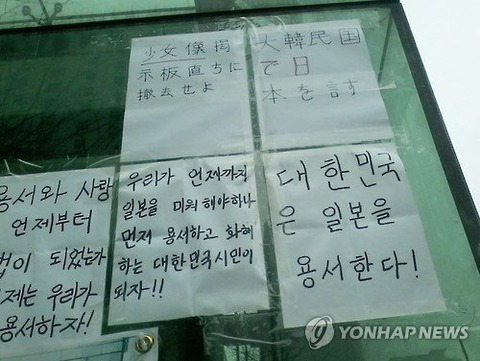 少女像掲
示板直ちに
撤去せよ
大韓民国
で日
本を言す
용서와 사랑
언제부터
법이 되었는가
제는 우리가
용서하자!
우리가 언제까지
일본을 미워 해야하나
먼저 용서하고 화해
하는 대한민국시민이
되자!!
대한민국
은 일본을
용서한다!
YONHAP NEWS